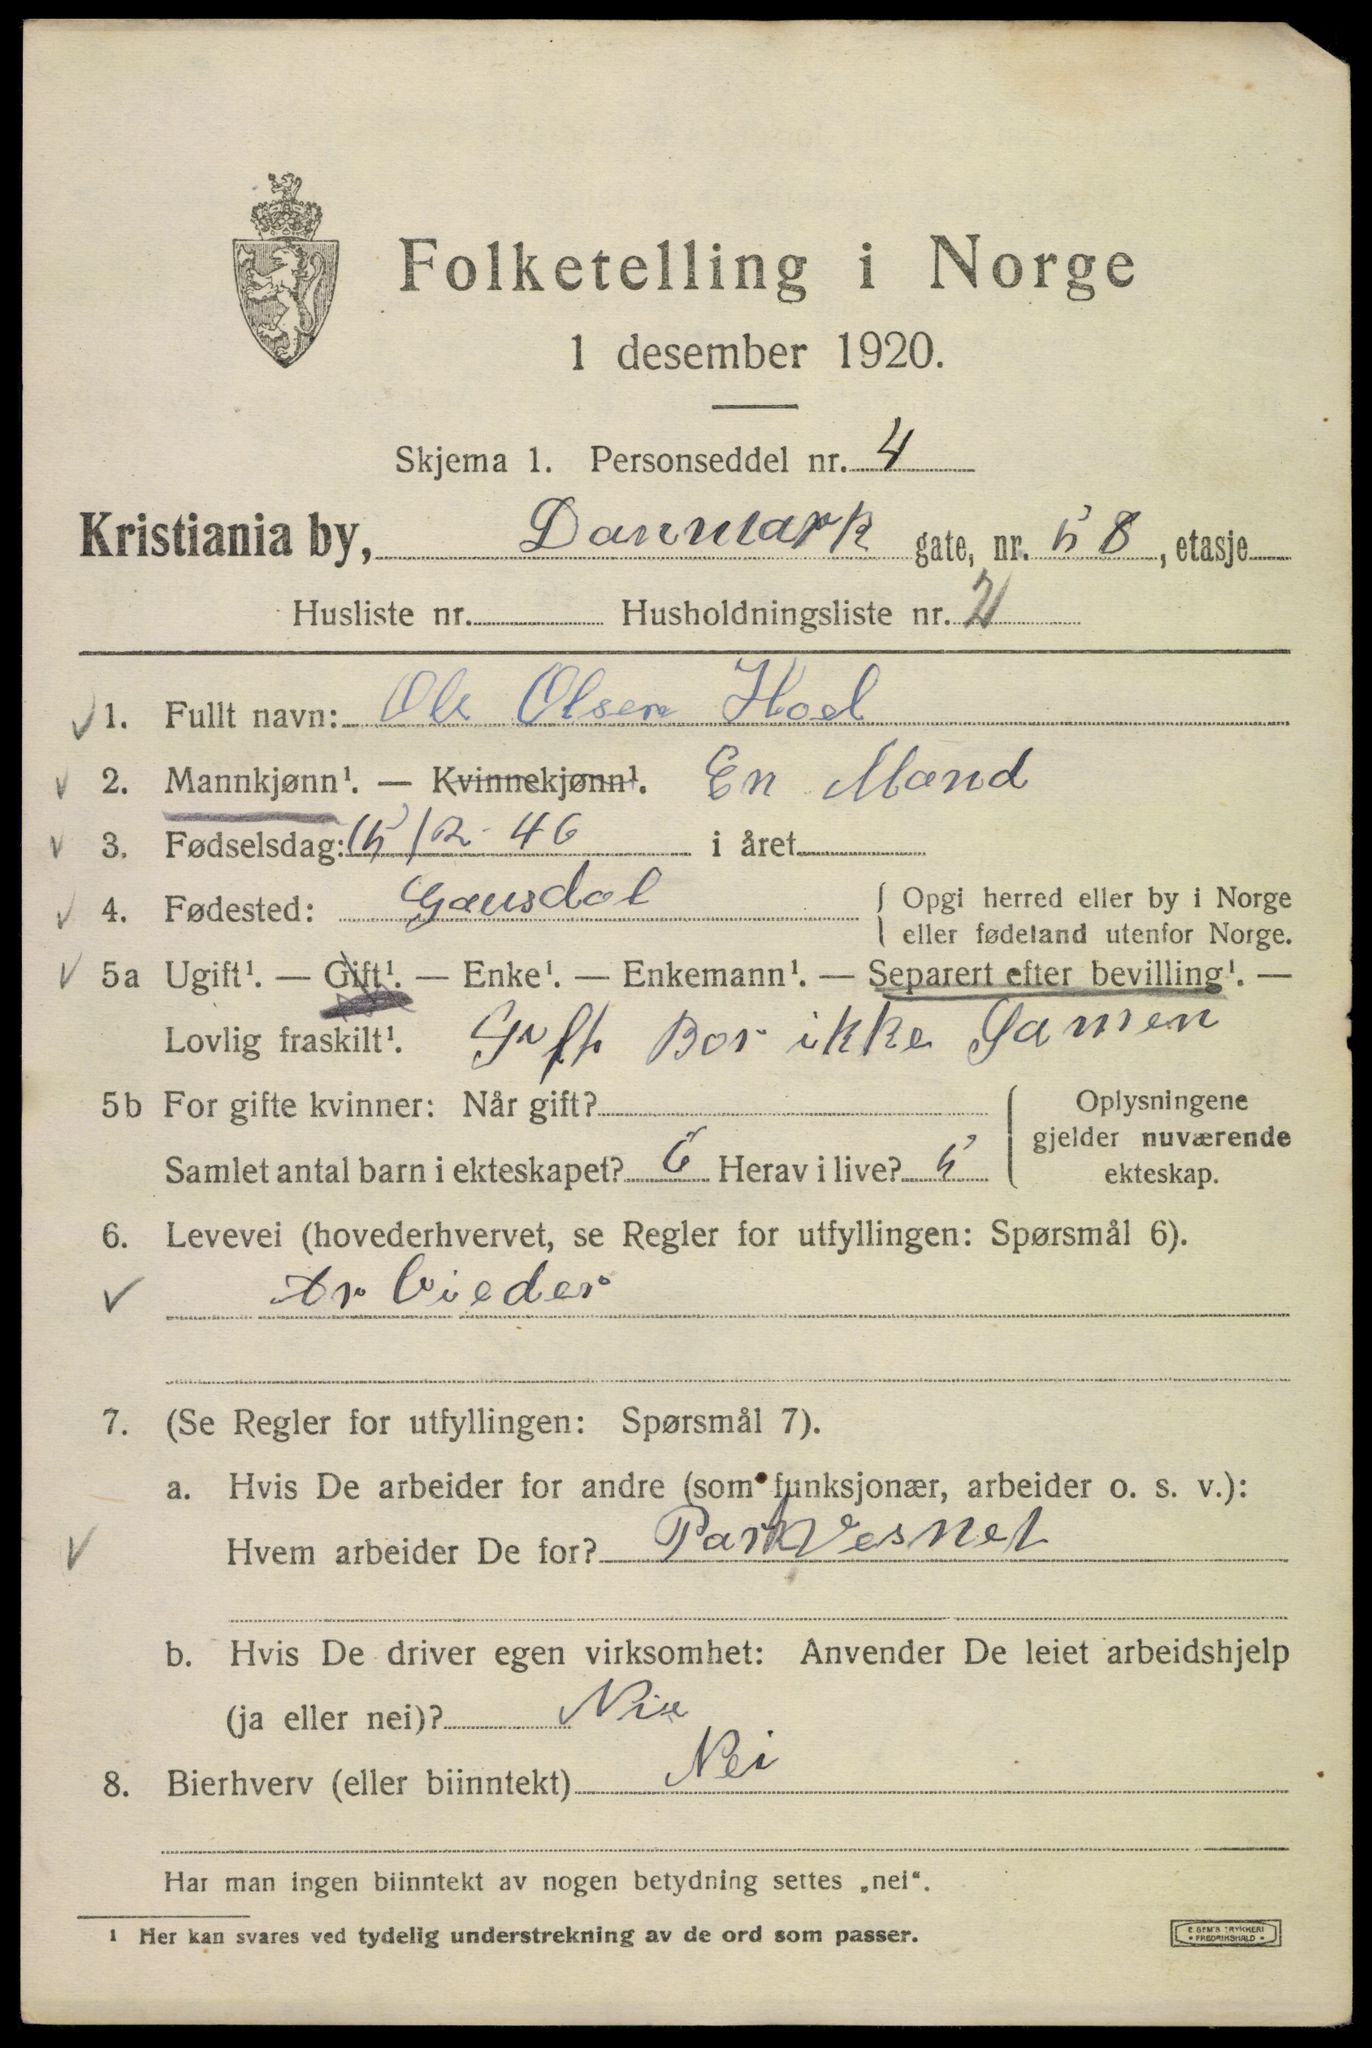 Folketelling i Norge
1 desember 1920.
Skjema 1. Personseddel nr. 4
Kristiania by, Danmark gate, nr. 58, etasje
Husliste nr. Husholdningsliste nr. 2
1. Fullt navn: Ole Olsen Hoel
2. Mannkjønn¹. — Kvinnekjønn¹. En Mand
3. Fødselsdag: 15/2-46 i året
4. Fødested: Gausdal { Opgi herred eller by i Norge
eller fødeland utenfor Norge.
5a Ugift¹. — Gift¹. — Enke¹. — Enkemann¹. — Separert efter bevilling¹. —
Lovlig fraskilt¹. Gift Bor ikke Samen
5b For gifte kvinner: Når gift? Oplysningene
gjelder nuværende
Samlet antal barn i ekteskapet? 6 Herav i live? 5 ekteskap.
6. Levevei (hovederhvervet, se Regler for utfyllingen: Spørsmål 6).
Arbieder
7. (Se Regler for utfyllingen: Spørsmål 7).
a. Hvis De arbeider for andre (som funksjonær, arbeider o. s. v.):
Hvem arbeider De for? Parkvesnet
b. Hvis De driver egen virksomhet: Anvender De leiet arbeidshjelp
(ja eller nei)? Nie
8. Bierhverv (eller biinntekt) Nei
Har man ingen biinntekt av nogen betydning settes „nei“.
¹ Her kan svares ved tydelig understrekning av de ord som passer.
E SEM'S TRYKKERI
• FREDRIKSHALD •